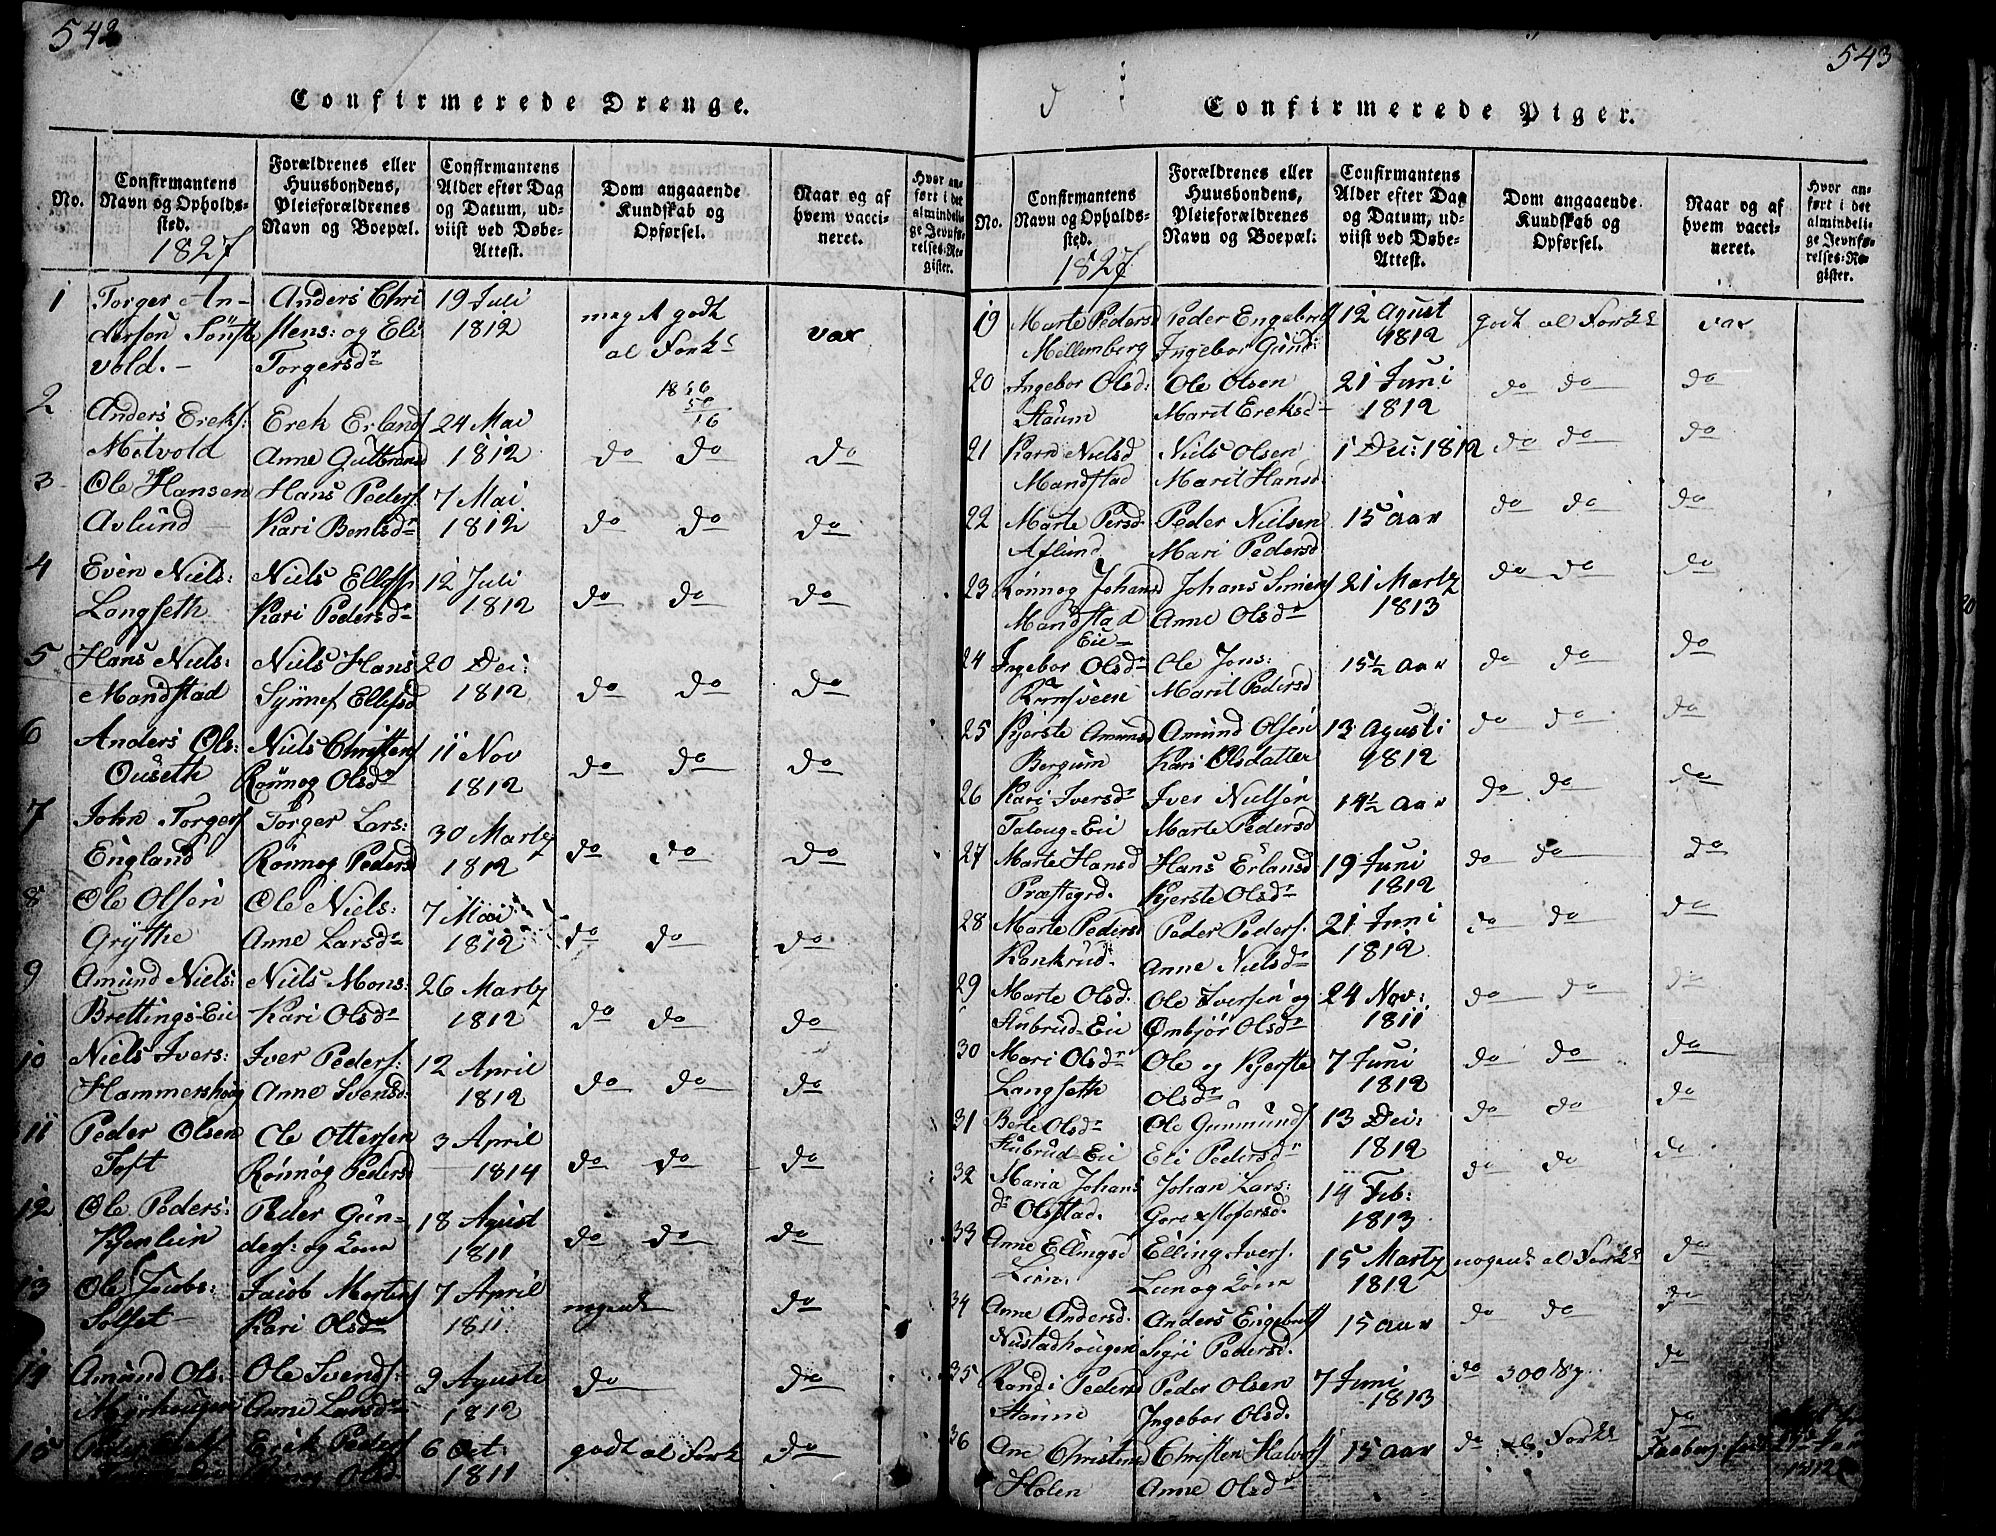 542
Confirmerede Drenge.
No.
Confirmantens
Navn og Opholds-
sted.
1827
Forældrenes eller
Huusbondens,
Pleieforældrenes
Navn og Boepæl.
Confirmantens
Alder efter Dag
og Datum, ud-
viist ved Døbe-
Attest.
Dom angaaende
Kundskab og
Opførsel.
Naar og af
hvem vacci-
neret.
Hvor an-
ført i det
almindeli-
ge Jevnfø-
relses-Re-
gister.
1 Torger An- Anders Chri 19 Juli meget godt vax
dersøn stens: og Eli 1812 al Fork
vold. Torgersdr
2 Anders Ereks: Erek Erlands 24 Mai
Mitvold Anne Gulbrands 1812 do do do
3 Ole Hansen Hans Peders: 7 Mai
Avlund Kari Bentsdr 1812 do do do
4 Even Niels: Niels Ellefs 12 Juli
Langseth Kari Pedersdr 1812 do do do
5 Hans Niels: Niels Hans 20 Dec:
Mandstad Synnef Ellefsd 1812 do do do
6 Anders Ols: Niels Christens 11 Nov
Ouseth Rønnog Olsdr 1812 do do do
7 John Torgers Torger Lars: 30 Martz
England Rønnog Pedersd 1812 do do do
8 Ole Olsen Ole Niels: 7 Mai
Grythe Anne Larsdr 1812 do do do
9 Amund Niels: Niels Mons: 26 Martz
Brettings-Eie Kari Olsdr 1812 do do do
10 Niels Ivers: Iver Peders: 12 April
Hammershoug Anne Svensd 1812 do do do
11 Peder Olsen Ole Ottersen 3 April
Toft Rønnog Pedersd 1814 do do do
12 Ole Peders: Peder Gun- 18 Agust
ders: og Lein 1811 do do do
13 Ole Jacobs: Jacob Mortens 7 April
Solset Kari Olsdr 1811 nogenl do
14 Amund Ols: Ole Svends: 9 Aguste
Myrhougen Anne Larsdr 1812 do do
15 Erik Peders 6 Oct:
1811 godt al Fork do
543
Confirmerede Piger.
No.
Confirmantens
Navn og Opholds-
sted.
1827
Forældrenes eller
Huusbondens,
Pleieforældrenes
Navn og Boepæl.
Confirmantens
Alder efter Dag
og Datum, ud-
viist ved Døbe-
Attest.
Dom angaaende
Kundskab og
Opførsel.
Naar og af
hvem vacci-
neret.
Hvor an-
ført i det
almindeli-
ge Jevnfø-
relses-Re-
gister.
19 Marte Pedersd Peder Engebrets 12 Agust godt al Fork vax
Mellemberg Ingebor Gund: 1812
20 Ingebor Olsd: Ole Olsen 21 Juni do do do
Staum Marit Ereksdr 1812
21 Karn Nielsd Niels Olsen 1 Dec: 1812 do do do
Mandstad Marit Hansd
22 Marte Persd. Peder Nielsen 15 aar do do do
Aflund Mari Pedersd
23 Rønnog Johansd Johans Simens 21 Martz do do do
Mandstad Anne Olsdr 1813
Eie
24 Ingebor Olsdr Ole Jons: 15½ aar do do do
Marit Pedersd
25 Kjerste Amunsd Amund Olsen 13 Agust: do do do
Bergum Kari Olsdatter 1812
26 Kari Iversdr Iver Nielsen 14½ aar do do do
Taloug-Eie Marte Pedersd
27 Marte Hansd Hans Erlands 19 Juni do do do
Præstegrd. Kjerste Olsdr 1812
28 Marte Pedersd Peder Peders. 21 Juni do do do
Konkrud. Anne Nielsdr 1812
29 Marte Olsd: Ole Iversen og 24 Nov: do do do
Stubrud-Eie Ombjør Olsdr 1811
30 Mari Olsdr Ole og Kjerste 7 Juni do do do
Langseth Olsdr 1812
31 Berte Olsdr Ole Gunmunds 13 Dec: do do do
Stubrud-Eie Eli Pedersdr 1812
32 Maria Johans Johan Lars: 14 Feb: do do do
dr Olstad. Gore xstofersd. 1813
33 Anne Ellingsd Elling Ivers. 15 Martz nogenl al Fork do
Lien. 1812
34 Anne Andersd. Anders Engebrets 15 aar do do do
Nustadhougen Sigri Pedersd.
35 Randi Pedersd Peder Olsen 7 Juni do do
Staum Ingebor Olsd. 1813
36 Ane Christensd Christen Halvors 15 aar do al Fork do
Holen Anne Olsdr Faaberg
1812